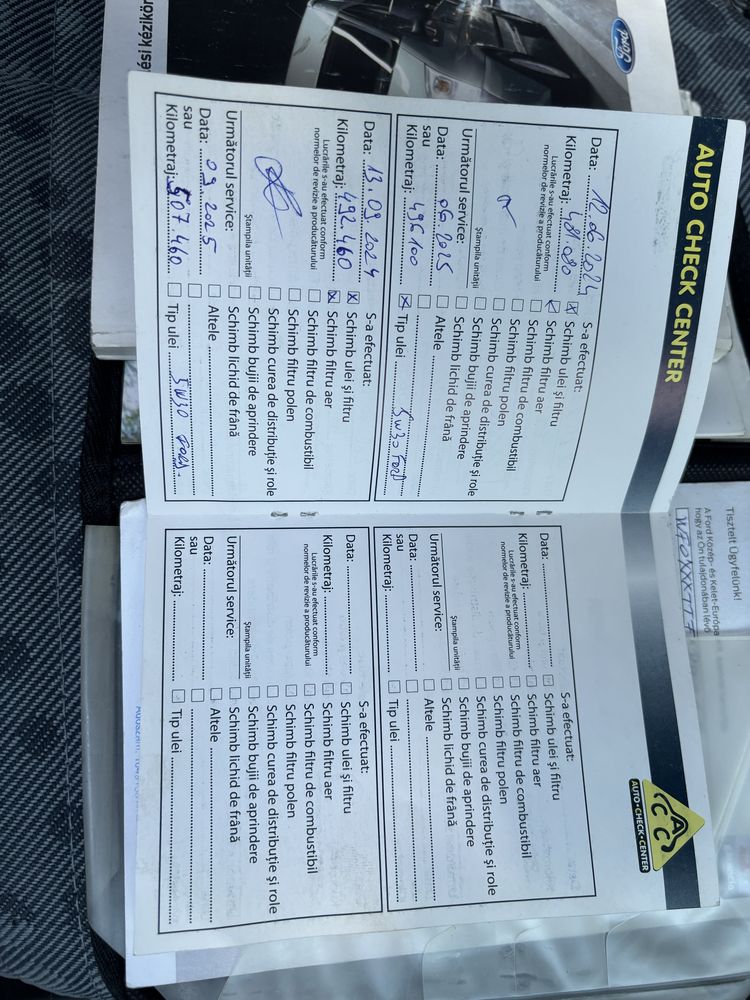 AUTO CHECK CENTER
Data: 12.06.2024
Kilometraj: 481.080
Lucrările s-au efectuat conform
normelor de revizie a producăturului
Ștampila unității
Următorul service:
Data: 06.2025
sau
Kilometraj: 496100
S-a efectuat:
☒ Schimb ulei și filtru
☒ Schimb filtru aer
☐ Schimb filtru de combustibil
☐ Schimb filtru polen
☐ Schimb curea de distribuție și role
☐ Schimb bujii de aprindere
☐ Schimb lichid de frână
☐ Altele
☐
☒ Tip ulei 5W30 FORD
Data: 13.09.2024
Kilometraj: 492.460
Lucrările s-au efectuat conform
normelor de revizie a producăturului
Ștampila unității
Următorul service:
Data: 09 2025
sau
Kilometraj: 507.460
S-a efectuat:
☒ Schimb ulei și filtru
☒ Schimb filtru aer
☐ Schimb filtru de combustibil
☐ Schimb filtru polen
☐ Schimb curea de distribuție și role
☐ Schimb bujii de aprindere
☐ Schimb lichid de frână
☐ Altele
☐
☐ Tip ulei 5W30 FORD
ACC
AUTO•CHECK•CENTER
Data:
Kilometraj:
Lucrările s-au efectuat conform
normelor de revizie a producăturului
Ștampila unității
Următorul service:
Data:
sau
Kilometraj:
S-a efectuat:
☐ Schimb ulei și filtru
☐ Schimb filtru aer
☐ Schimb filtru de combustibil
☐ Schimb filtru polen
☐ Schimb curea de distribuție și role
☐ Schimb bujii de aprindere
☐ Schimb lichid de frână
☐ Altele
☐
☐ Tip ulei
Data:
Kilometraj:
Lucrările s-au efectuat conform
normelor de revizie a producăturului
Ștampila unității
Următorul service:
Data:
sau
Kilometraj:
S-a efectuat:
☐ Schimb ulei și filtru
☐ Schimb filtru aer
☐ Schimb filtru de combustibil
☐ Schimb filtru polen
☐ Schimb curea de distribuție și role
☐ Schimb bujii de aprindere
☐ Schimb lichid de frână
☐ Altele
☐
☐ Tip ulei
Ford
Tisztelt Ügyfelünk!
A Ford Közép- és Kelet-Európa
hogy az Ön tulajdonában lévő